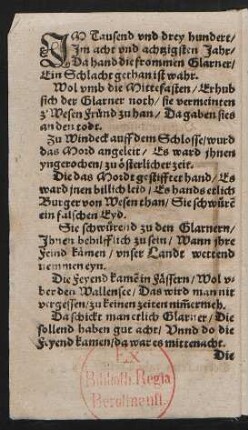 IM Tausend vnd drey hundert/
Jm acht vnd achtzigsten Jahr/
Da hand die frommen Glarner/
Ein Schlacht gethan ist wahr.
Wol vmb die Mittefasten/ Erhub
sich der Glarner noth/ sie vermeinten
z' Wesen Fründ zu han/ Da gaben sies
an den todt.
Zu Windeck auff dem Schlosse/ wurd
das Mord angeleit/ Es ward jhnen
yngerochen/ zu österlicher zeit.
Die das Mordt gestifftet hand/ Es
ward jnen billich leid/ Es hands etlich
Burger von Wesen than/ Sie schwurē
ein falschen Eyd.
Sie schwürend zu den Glarnern/
Jhnen behilfflich zu sein/ Wann jhre
Feind kämen/ vnser Landt wettend
nemmen eyn.
Die Feyend kamē in Fässern/ Wol v-
ber den Wallensee/ Das wird man nit
vergessen/ zu keinen zeiten nim̄ermeh.
Da schickt man etlich Glarner/ Die
sollend haben gut acht/ Vnnd do die
Feyend kamen/ da war es mittenacht.
Die
Ex
Biblioth. Regia
Berolinensi.